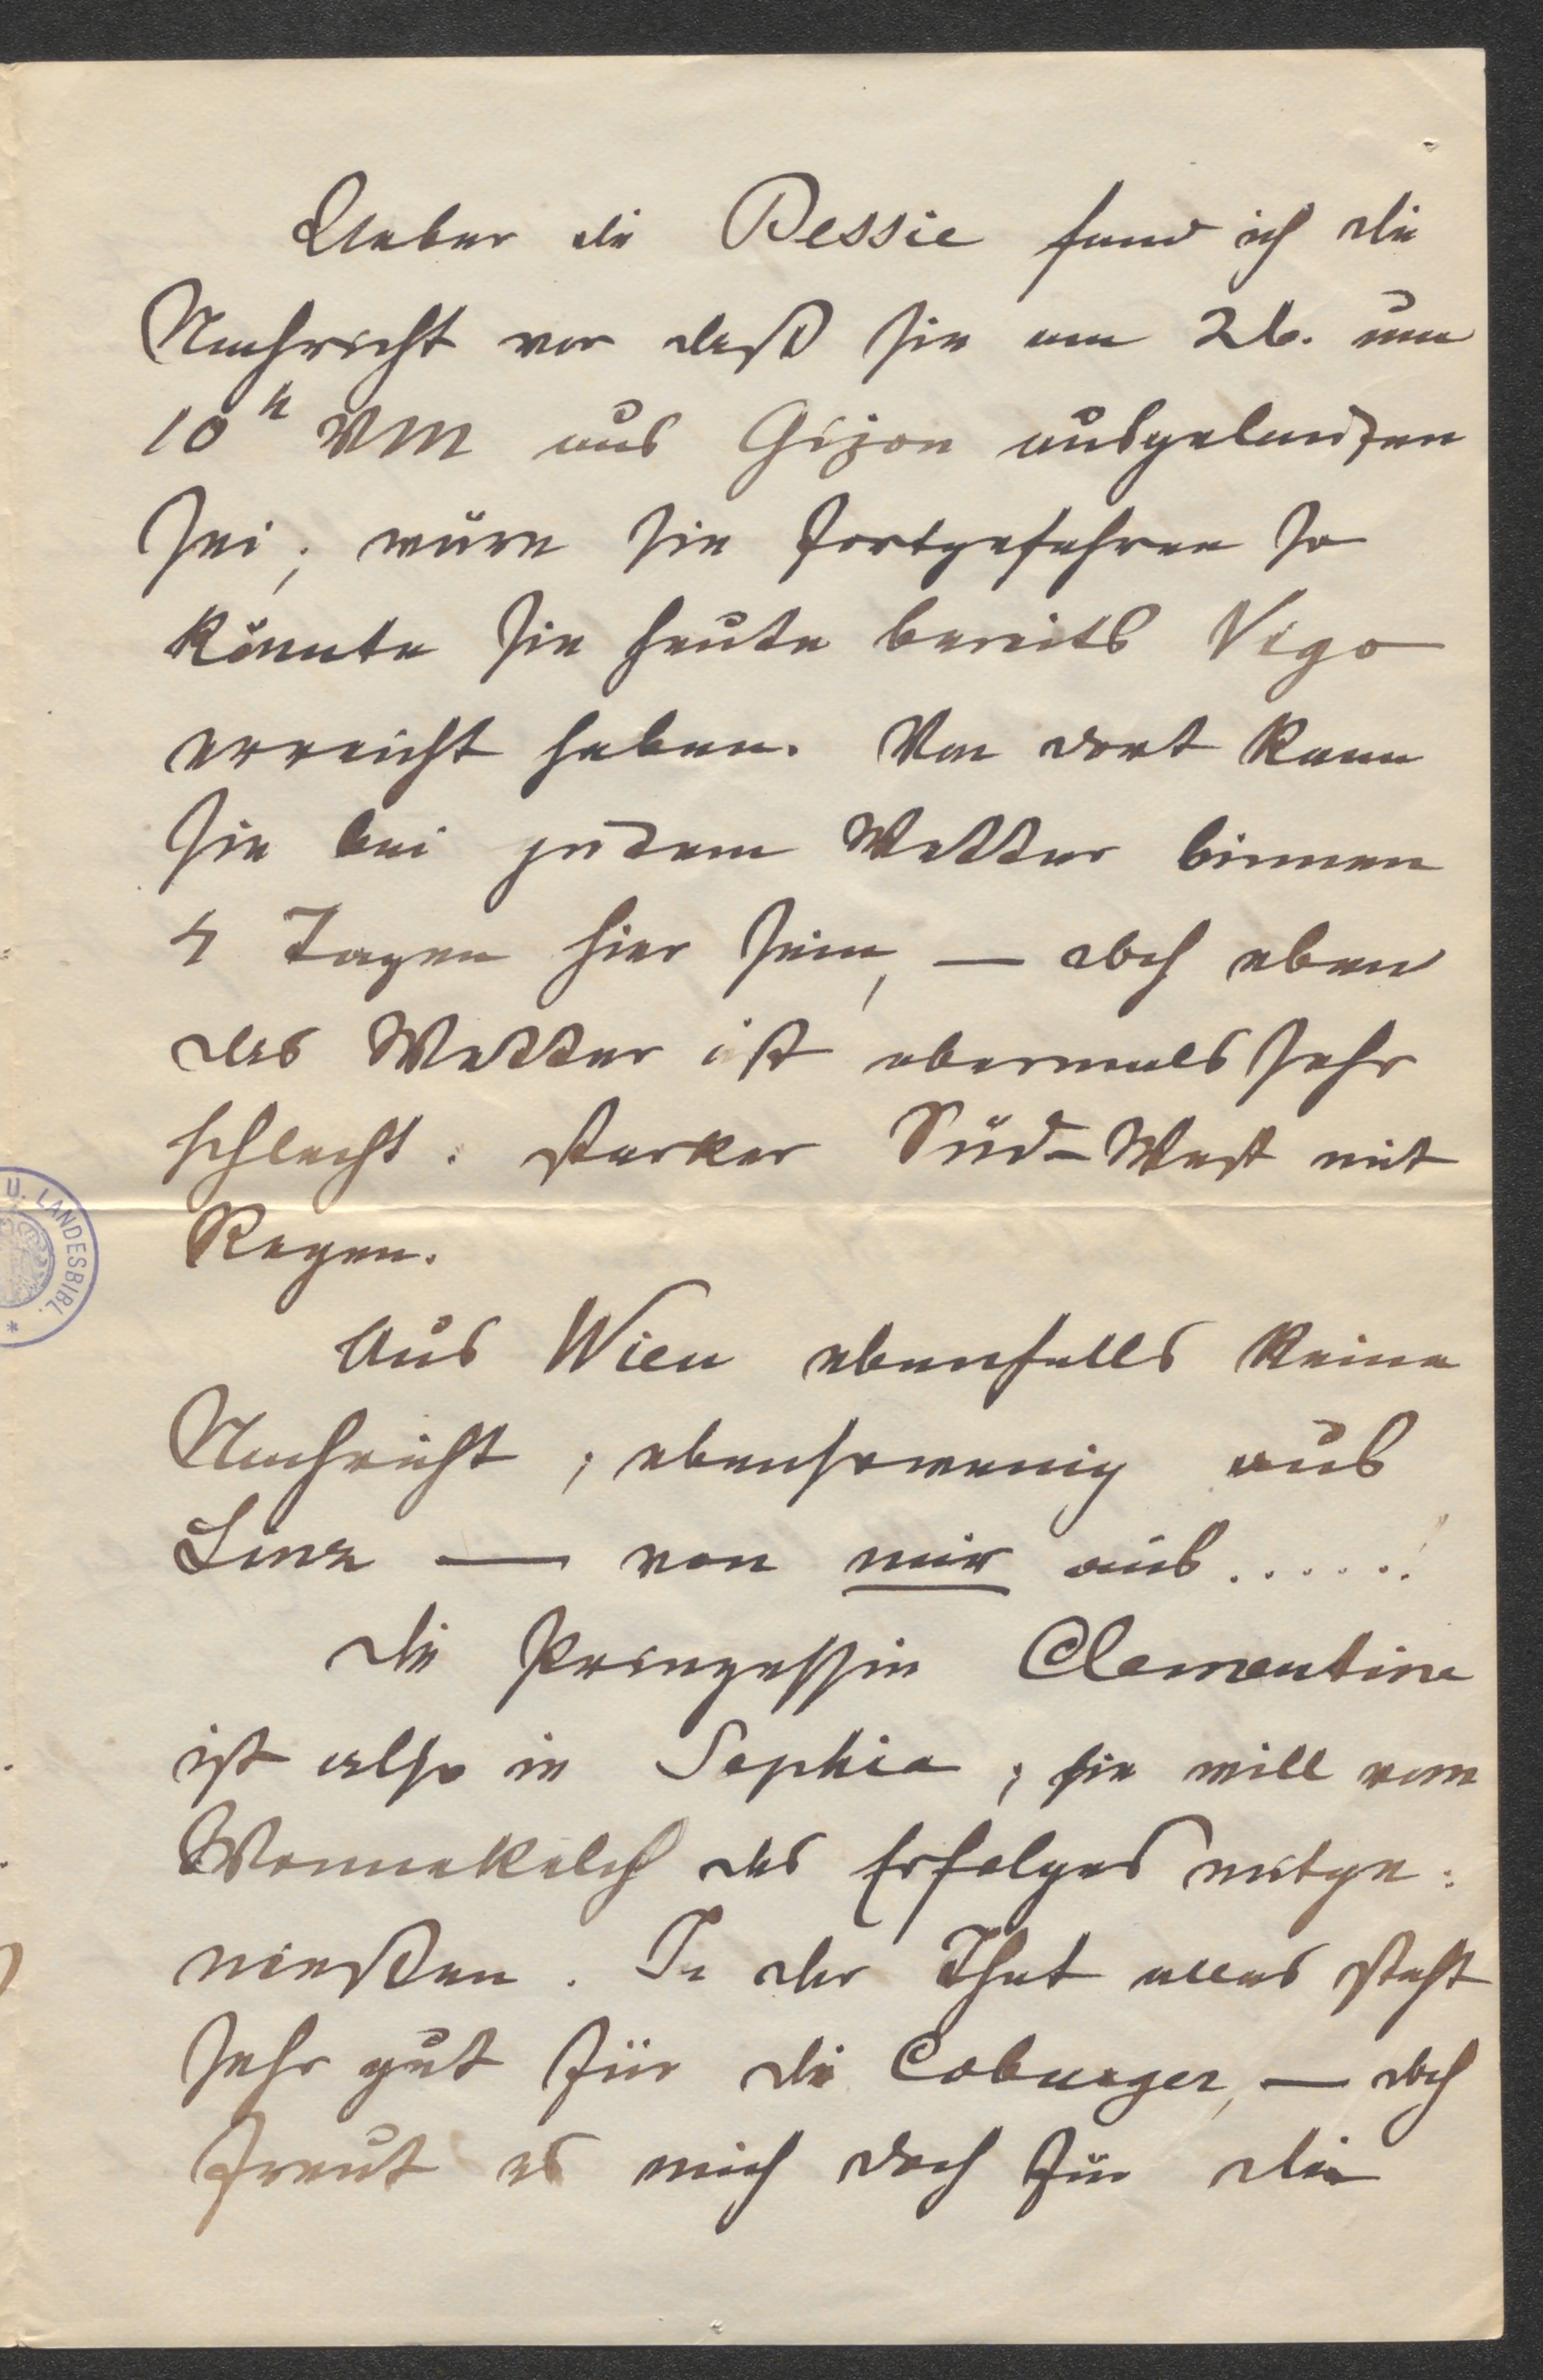 Ueber die Bessie fand ich die
Nachricht vor daß sie am 26. um
10h VM aus Gijon ausgelaufen
sei; wäre sie fortgefahren so
könnte sie heute bereits Vigo
erreicht haben. Von dort kann
sie bei gutem Wetter binnen
4 Tagen hier sein, — doch eben
das Wetter ist abermals sehr
schlecht: starker Süd-West mit
Regen.
Aus Wien ebenfalls keine
Nachricht; ebensowenig aus
Linz — von mir aus......!
Die Prinzessin Clementine
ist also in Sophia; sie will vom
Wonnekelch des Erfolges mitge:
nießen. In der That alles steht
sehr gut für die Coburger, — doch
freut es mich doch für die
U. LANDESBIBL. *